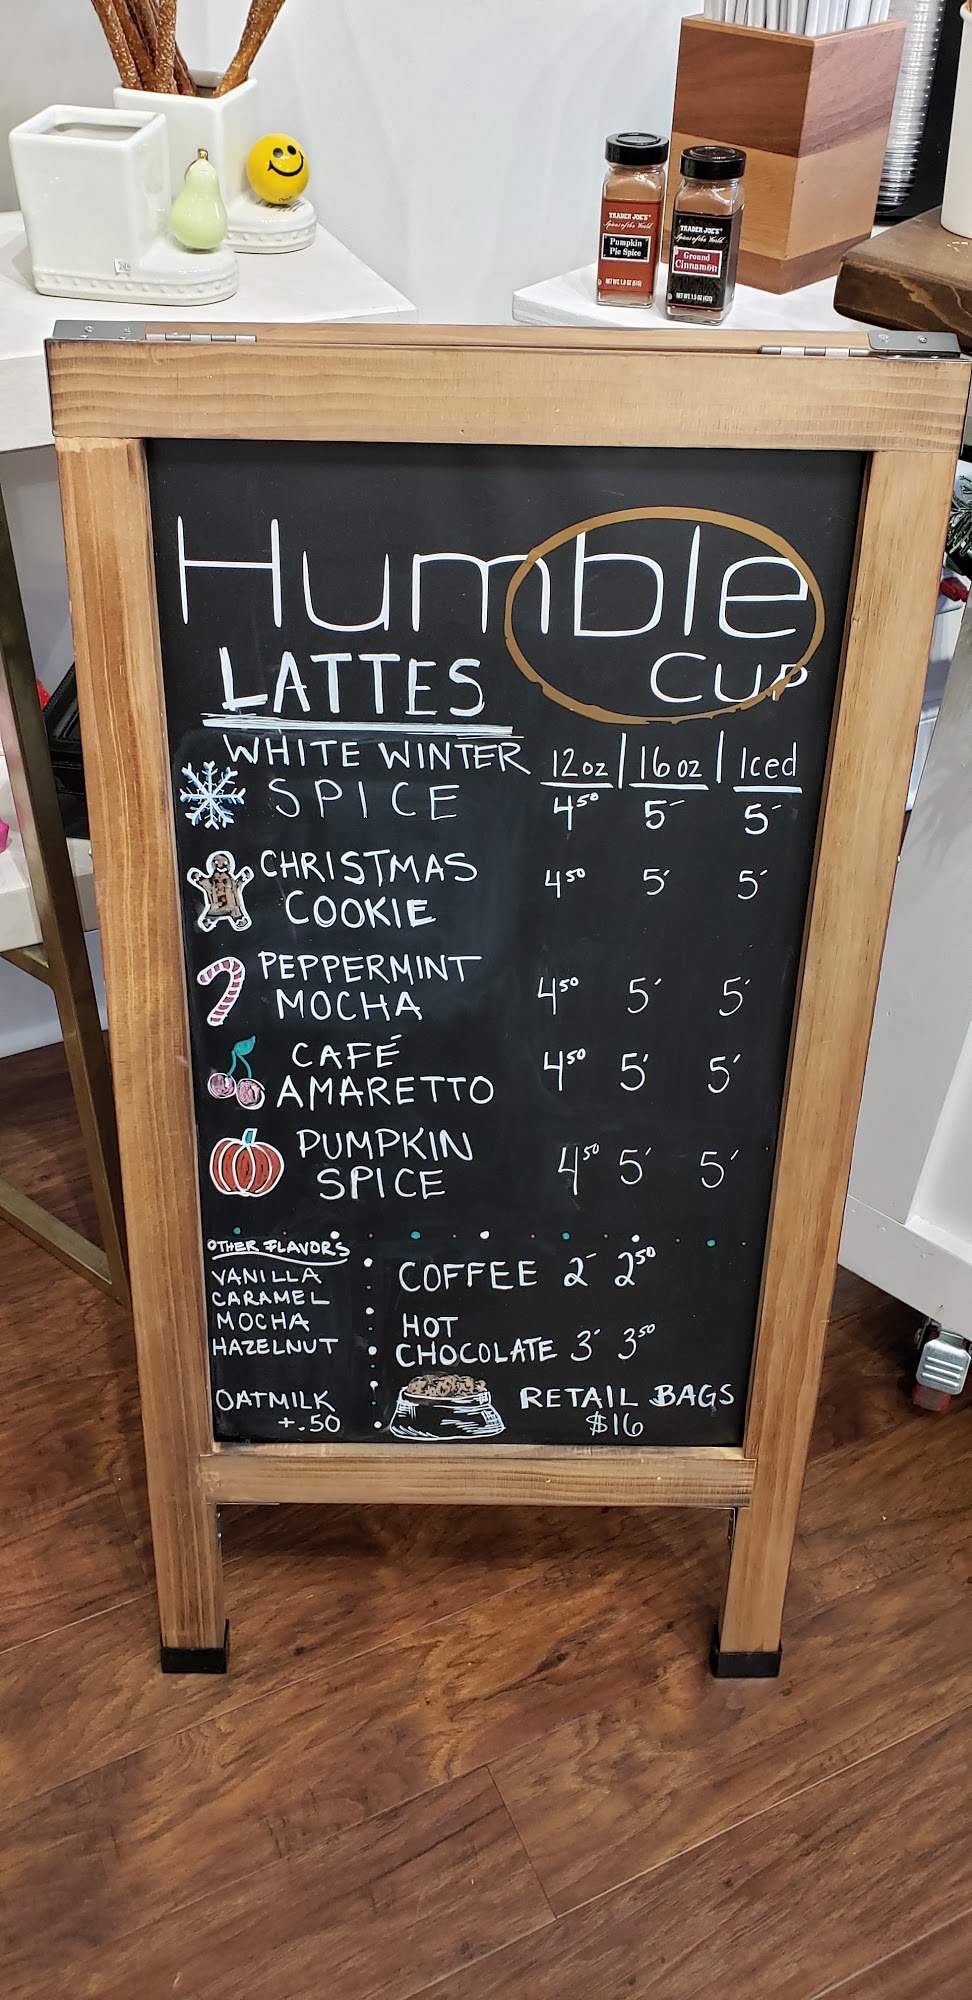 TRADER JOE'S
Spices of the World
Pumpkin
Pie Spice
NET WT. 1.8 OZ (51G)
TRADER JOE'S
Spices of the World
Ground
Cinnamon
Humble
CUP
LATTES
12 oz | 16 oz | Iced
WHITE WINTER
SPICE 4.50 5- 5-
CHRISTMAS
COOKIE 4.50 5- 5-
PEPPERMINT
MOCHA 4.50 5- 5-
CAFÉ
AMARETTO 4.50 5- 5-
PUMPKIN
SPICE 4.50 5- 5-
OTHER FLAVORS
VANILLA
CARAMEL
MOCHA
HAZELNUT
OATMILK
+.50
COFFEE 2- 2.50
HOT
CHOCOLATE 3- 3.50
RETAIL BAGS
$16